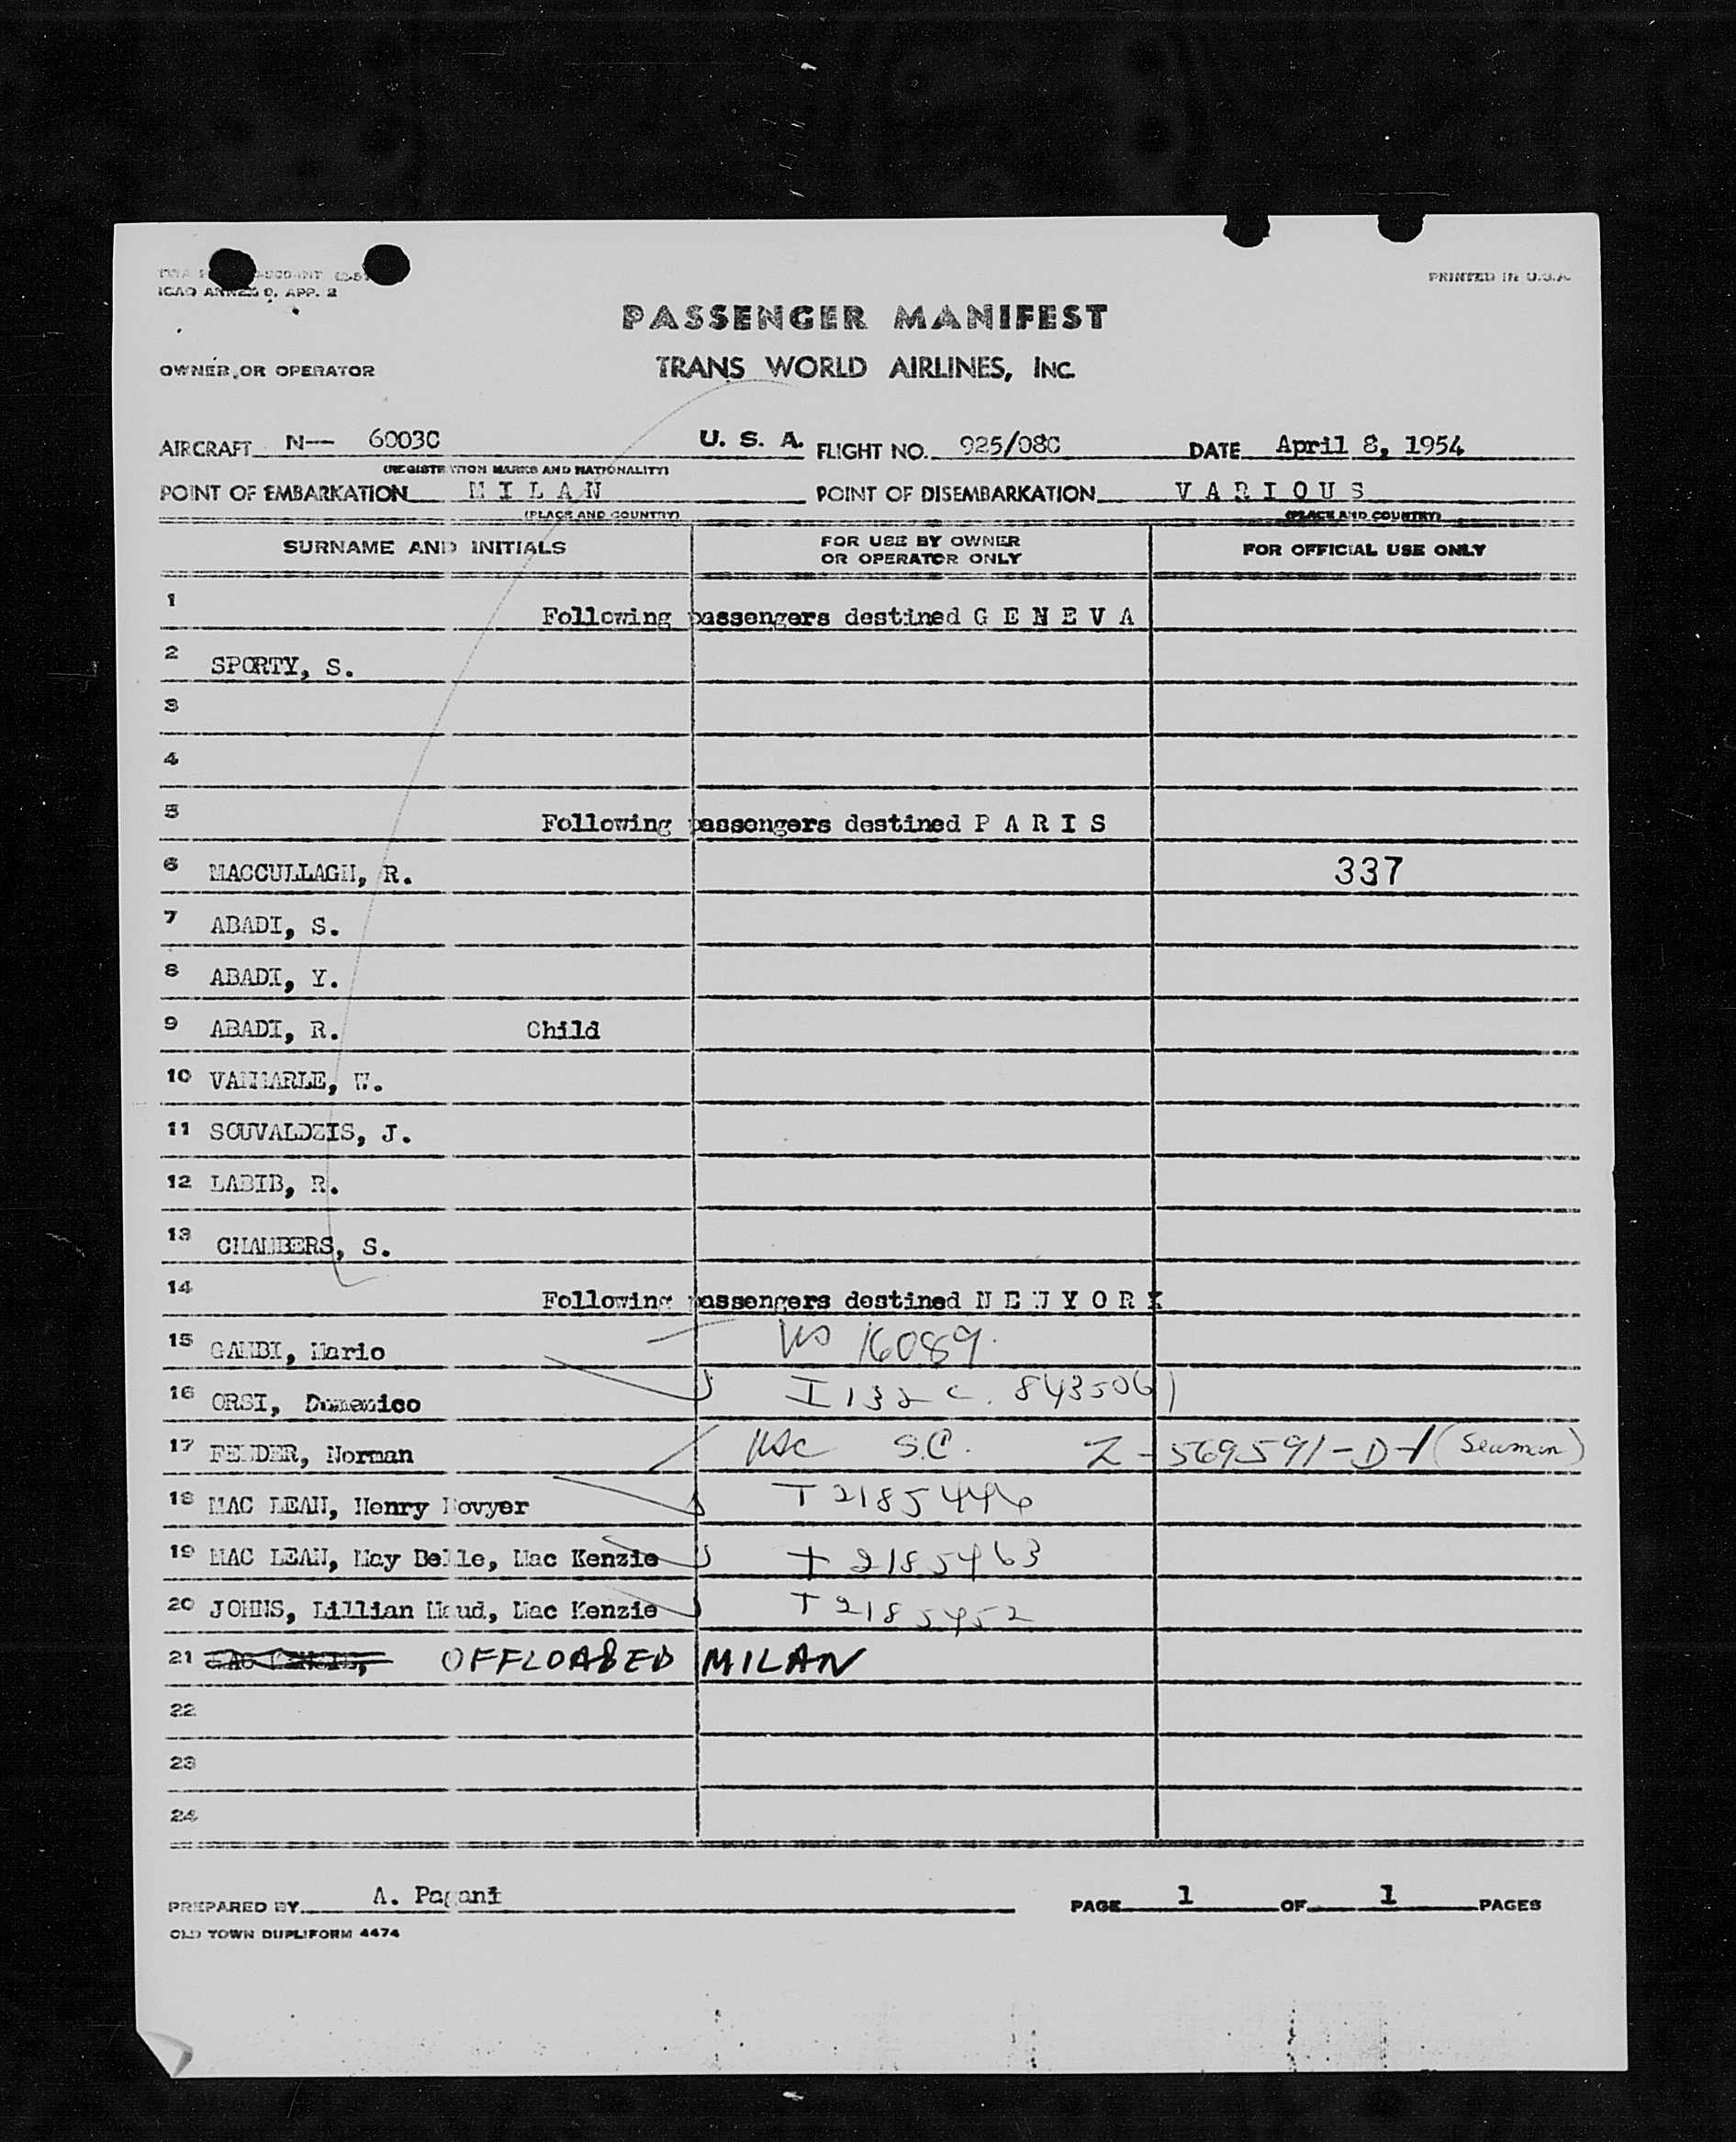 ICAO ANNEX 9, APP. 2
PRINTED IN U.S.A.
PASSENGER MANIFEST
OWNER OR OPERATOR TRANS WORLD AIRLINES, INC.
AIRCRAFT N— 6003C U. S. A. FLIGHT NO. 925/08C DATE April 8, 1954
(REGISTRATION MARKS AND NATIONALITY)
POINT OF EMBARKATION M I L A N POINT OF DISEMBARKATION V A R I O U S
(PLACE AND COUNTRY) (PLACE AND COUNTRY)
SURNAME AND INITIALS FOR USE BY OWNER OR OPERATOR ONLY FOR OFFICIAL USE ONLY
1 Following passengers destined G E N E V A
2 SPORTY, S.
3
4
5 Following passengers destined P A R I S
6 MACCULLAGH, R. 337
7 ABADI, S.
8 ABADI, Y.
9 ABADI, R. Child
10 VANMARLE, W.
11 SOUVALDZIS, J.
12 LABIB, R.
13 CHAMBERS, S.
14 Following passengers destined N E W Y O R K
15 GAMBI, Mario 16089
16 ORSI, Domenico I 132 c. 8435061
17 FENDER, Norman USC S.C. Z-569591-D-1 (Seaman)
18 MAC LEAN, Henry Bovyer T 2185446
19 MAC LEAN, May Belle, Mac Kenzie T 2185463
20 JOHNS, Lillian Maud, Mac Kenzie T 2185452
21 OFFLOADED MILAN
22
23
24
PREPARED BY A. Pagani PAGE 1 OF 1 PAGES
OLD TOWN DUPLIFORM 4474